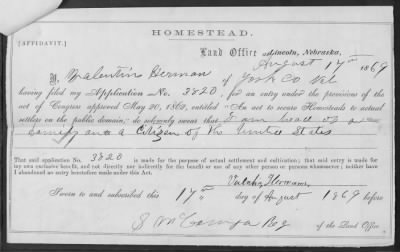 HOMESTEAD.
[AFFIDAVIT.]
Land Office Lincoln, Nebraska,
August 17th 1869
I, Valentin Herman of York Co Neb
having filed my Application No. 3820, for an entry under the provisions of the
act of Congress approved May 20, 1862, entitled "An act to secure Homesteads to actual
settlers on the public domain; do solemnly swear that I am head of a
family and a Citizen of the United States
That said application No. 3820 is made for the purpose of actual settlement and cultivation; that said entry is made for
my own exclusive benefit, and not directly nor indirectly for the benefit or use of any other person or persons whomsoever; neither have
I abandoned an entry heretofore made under this Act.
Hermann
Sworn to and subscribed this 17th day of August 1869 before
S M Reg
of the Land Office